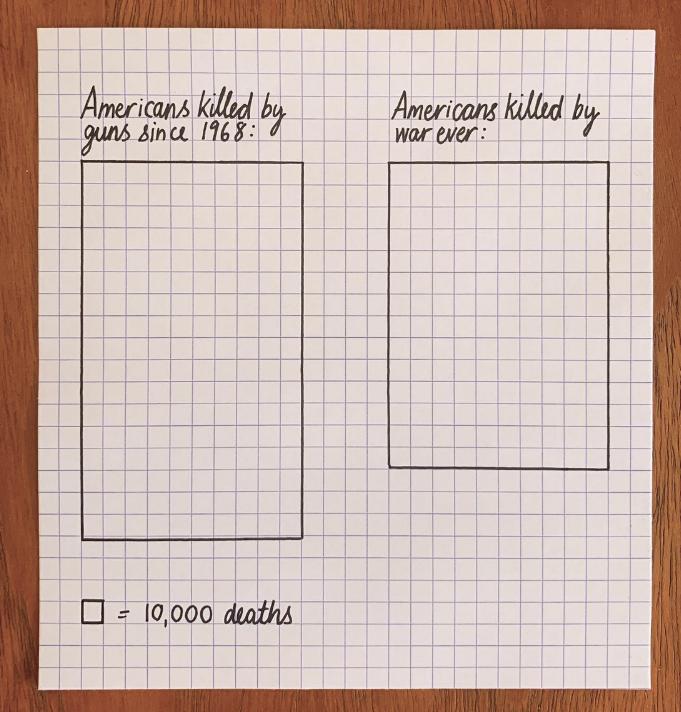 Americans killed by
guns since 1968:
Americans killed by
war ever:
= 10,000 deaths